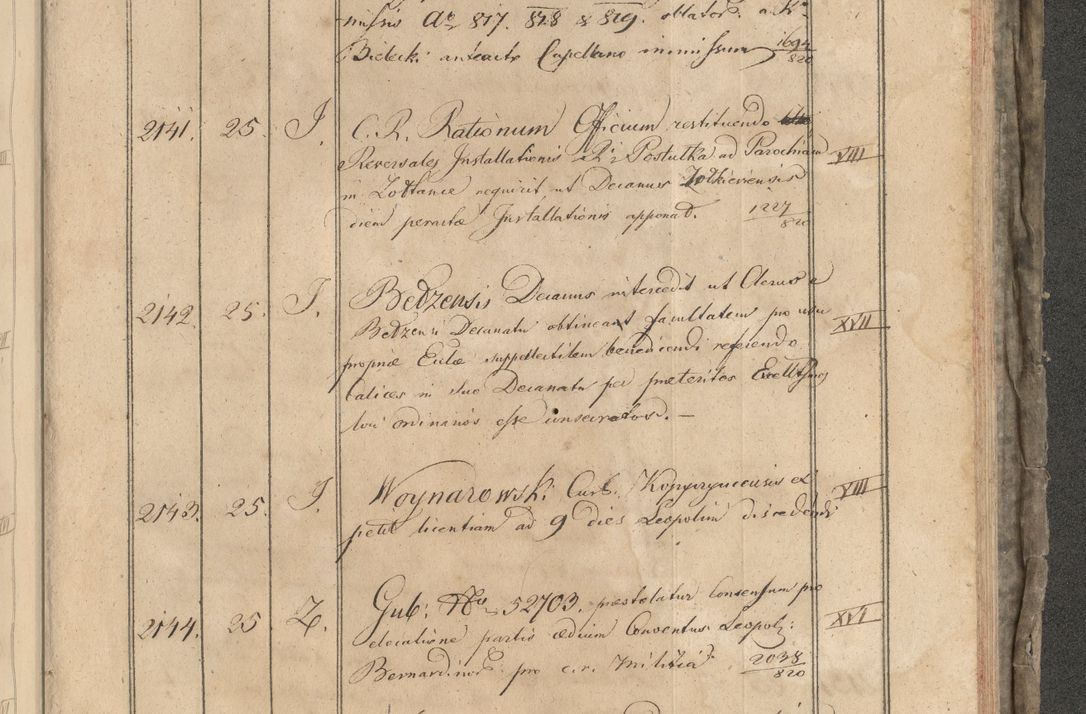 missis Ao 817. 818 & 819. oblator: a R:
Bielecki anteacto Capellano inmissum 1694/820
2141. 25. J. C. R. Rationum Officium restituendo
Reversales Installationis R: Postulka ad Parochiam VIII
in Zołtance requirit ut Decanus Zołkieviensis
diem peractæ Installationis apponat. 1227/820
2142. 25. J. Bełzensis Decanus intercedit ut Clerus e
Bełzensi Decanatu obtineant facultatem pro usu XVII
propriæ Eclæ suppellectilem benedicendi referendo
Calices in suo Decanatu per præteritos Excellmos
loci ordinarios esse consecratos. —
2143. 25. J. Woynarowski Curs. Kopyczyncensis VIII
petit licentiam ad 9 dies Leopolim discedendi
2144. 25 Z. Gub: No 52703. præstolatur Consensum pro XVI
elocatione partis ædium Conventus Leopol:
Bernardinor: pro c. r. Militia 2038/820